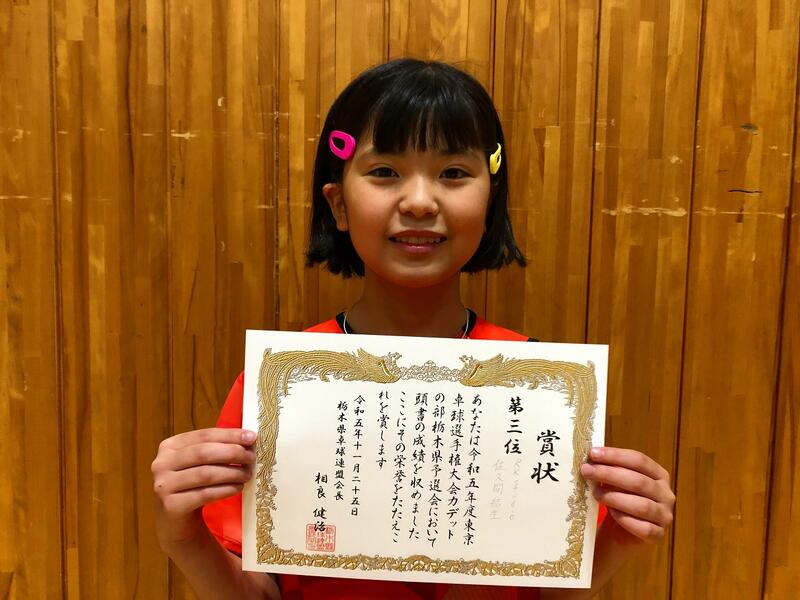 賞状
第三位
佐久間
あなたは令和五年度東京
卓球選手権大会カデット
の部栃木県予選会において
頭書の成績を収めました
ここにその栄誉をたたえこ
れを賞します
令和五年十一月二十五日
栃木県卓球連盟会長
相良 健治